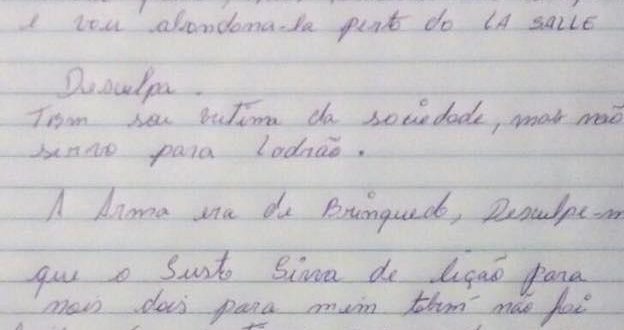 e vou abandona-la perto do LA SALLE
Desculpa.
Tbm sou vitima da sociedade, mas não
sirvo para ladrão.
A Arma era de Brinquedo, Desculpe-m
que o Susto Sirva de lição para
nois dois para mim tbm não foi